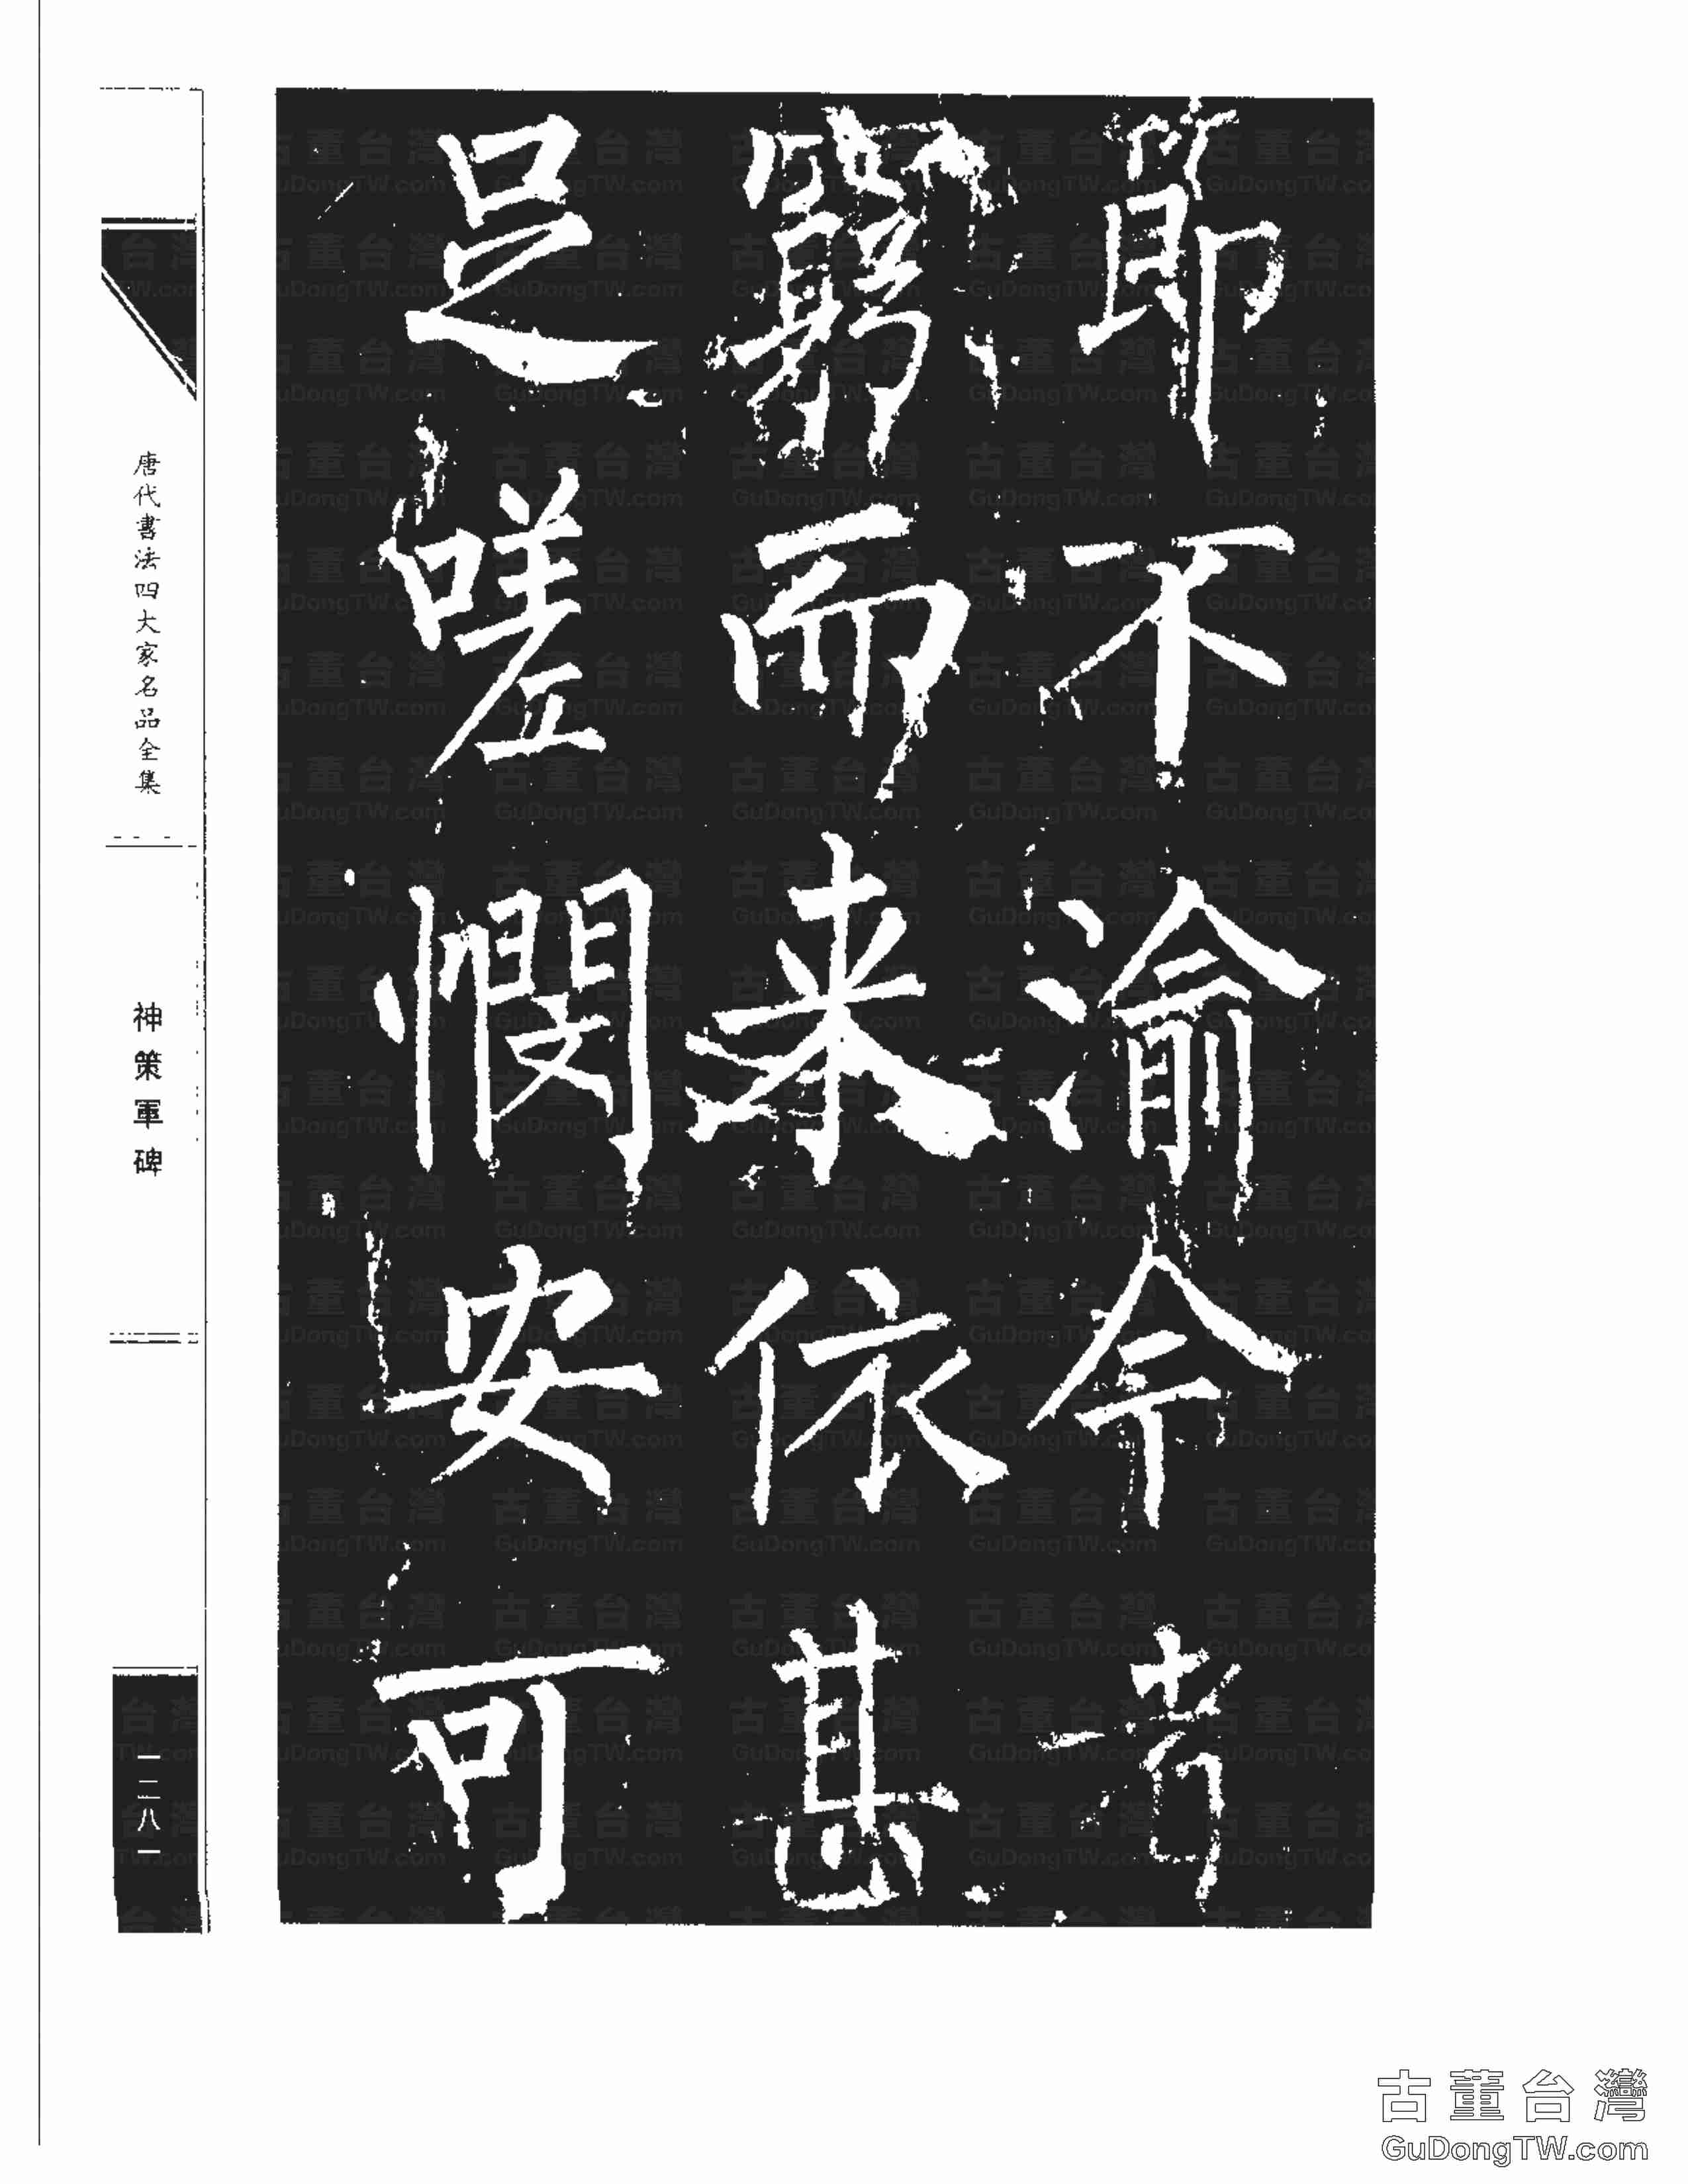 節不渝今者
窮而来依甚
足嗟憫安可
唐代書法四大家名品全集
神策軍碑
一二八一
古董台灣
GuDongTW.com